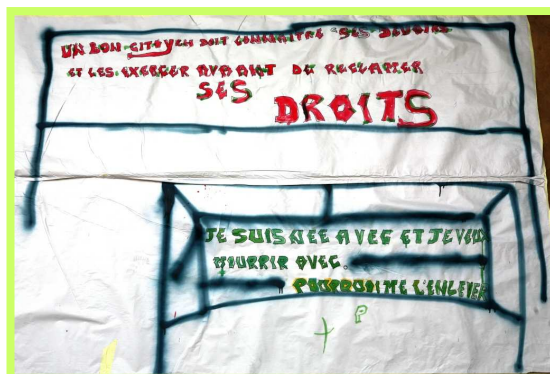 UN BON CITOYEN DOIT CONNAITRE SES DEVOIRS
ET LES EXERCER AVANT DE RECLAMER
SES
DROITS
JE SUIS NEE AVEC ET JE VEUX
MOURRIR AVEC.
POURQUOI ME L'ENLEVER
P